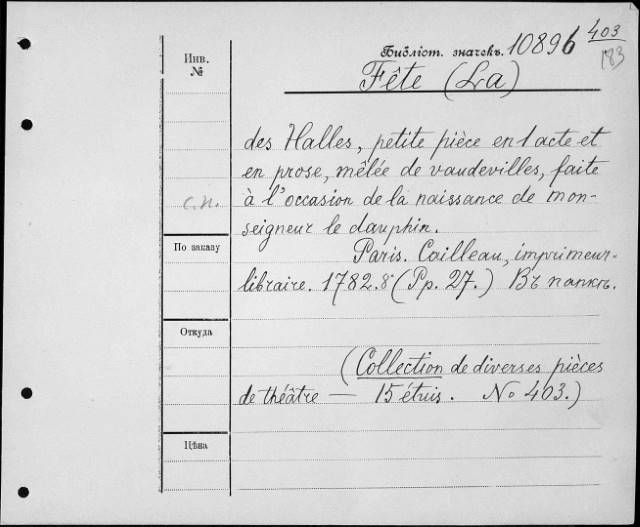 Инв. №
Библіот. значекъ. 10896 403
183
Fête (La)
des Halles, petite pièce en 1 acte et
en prose, mêlée de vaudevilles, faite
à l'occasion de la naissance de mon-
seigneur le dauphin.
Paris. Cailleau, imprimeur-
libraire. 1782. 8° (Pp. 27.) Въ папкѣ.
с.п.
По заказу
Откуда
(Collection de diverses pièces
de théâtre — 15 étuis. No 403.)
Цѣна